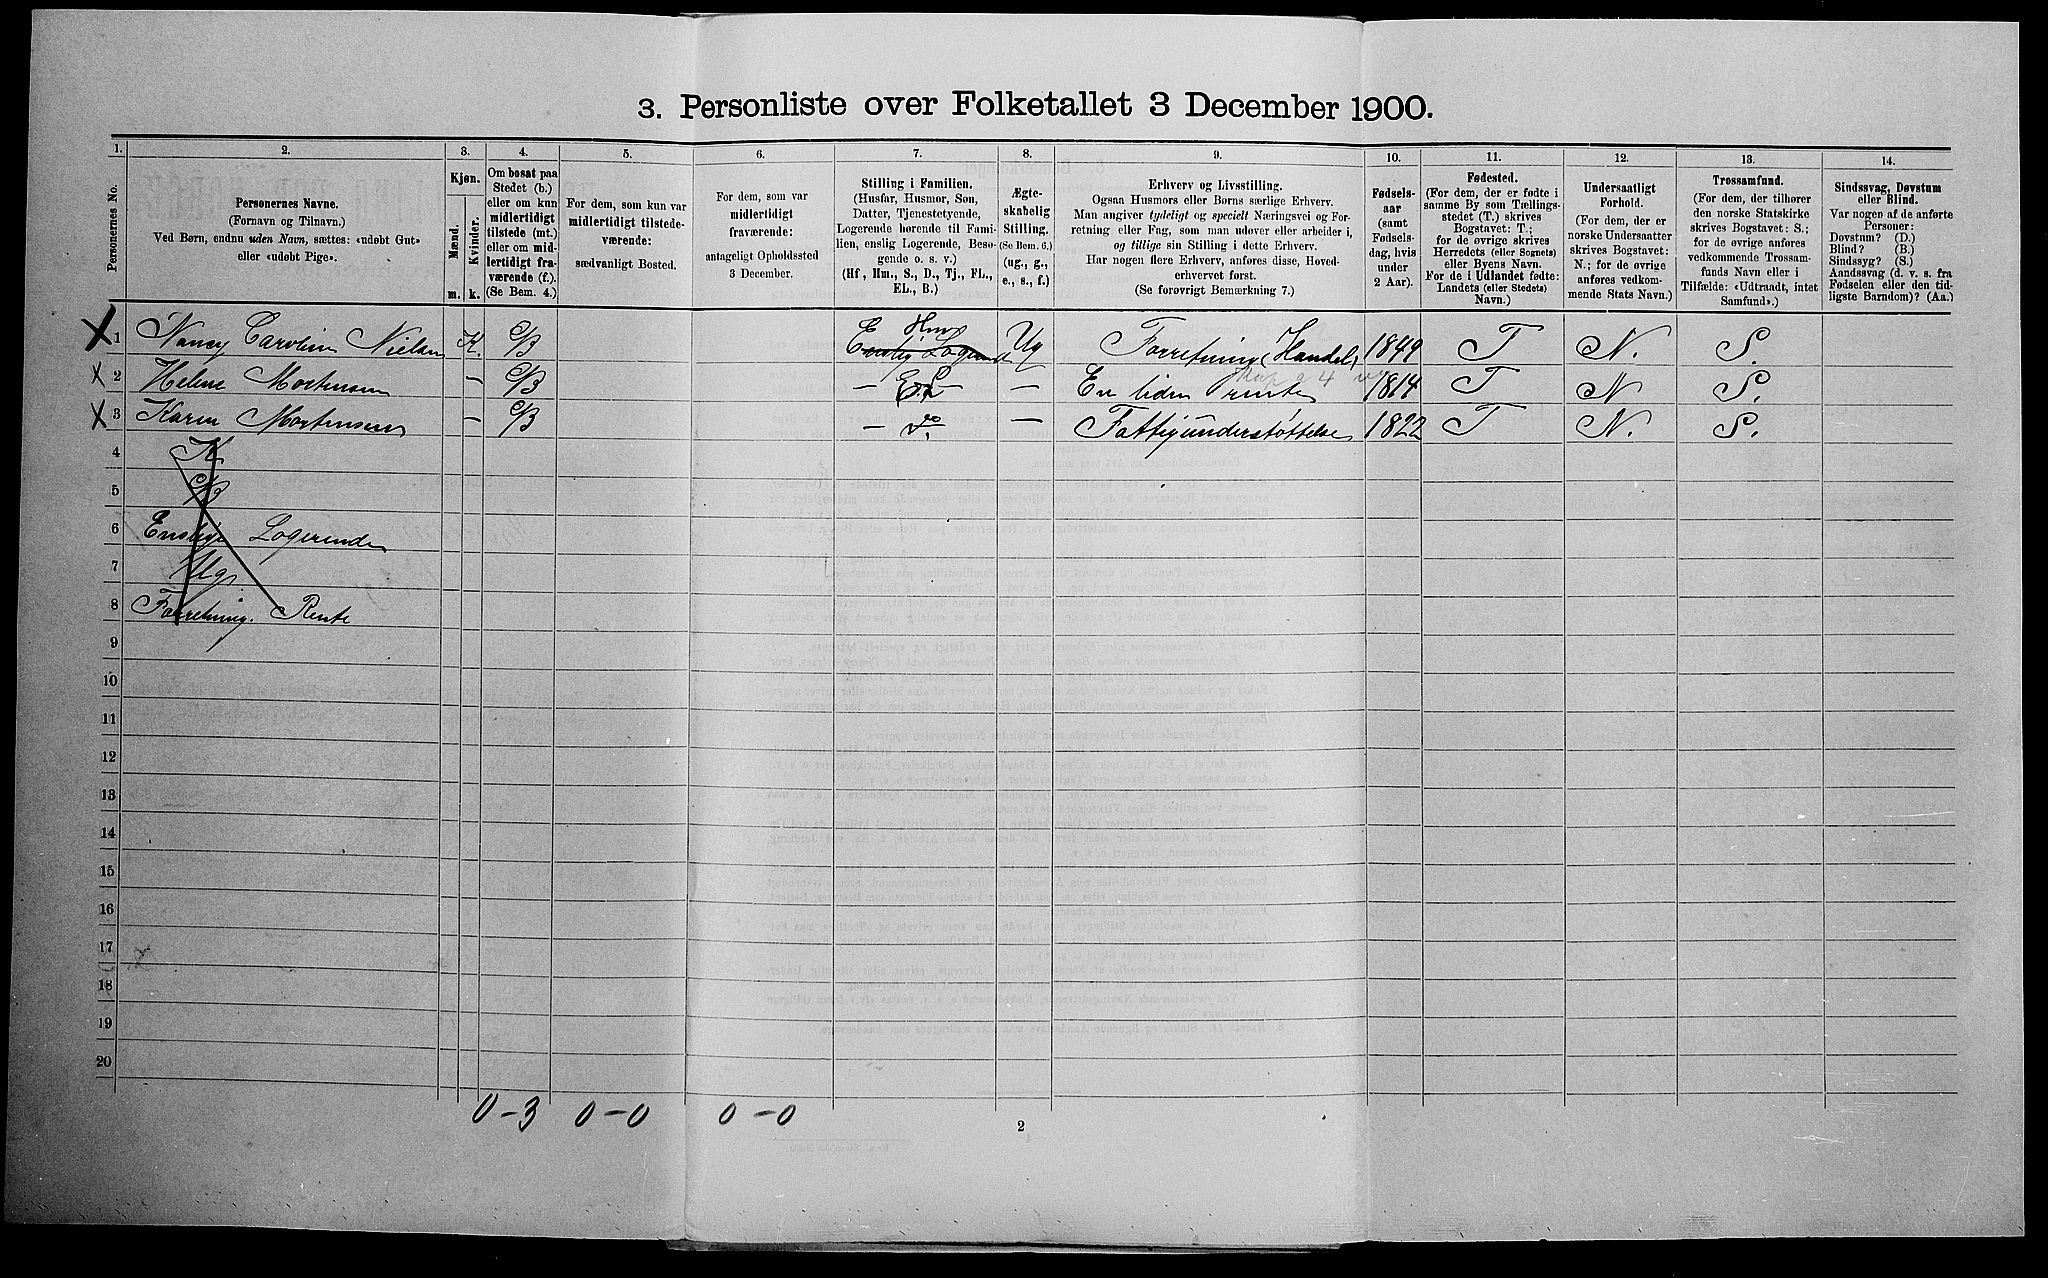 3. Personliste over Folketallet 3 December 1900.
1. 2. 3. 4. 5. 6. 7. 8. 9. 10. 11. 12. 13. 14.
Personernes No.
Personernes Navne.
(Fornavn og Tilnavn.)
Ved Børn, endnu uden Navn, sættes: «udøbt Gut»
eller «udøbt Pige».
Kjøn.
Mænd. Kvinder.
m. k.
Om bosat paa
Stedet (b.)
eller om kun
midlertidigt
tilstede (mt.)
eller om mid-
lertidigt fra-
værende (f.).
(Se Bem. 4.)
For dem, som kun var
midlertidigt tilstede-
værende:
sædvanligt Bosted.
For dem, som var
midlertidigt
fraværende:
antageligt Opholdssted
3 December.
Stilling i Familien.
(Husfar, Husmor, Søn,
Datter, Tjenestetyende,
Logerende hørende til Fami-
lien, enslig Logerende, Beso-
gende o. s. v.)
(Hf, Hm., S., D., Tj., FL.,
EL., B.)
Ægte-
skabelig
Stilling.
(Se Bem. 6.)
(ug., g.,
e., s., f.)
Erhverv og Livsstilling.
Ogsaa Husmors eller Børns særlige Erhverv.
Man angiver tydeligt og specielt Næringsvei og For-
retning eller Fag, som man udøver eller arbeider i,
og tillige sin Stilling i dette Erhverv.
Har nogen flere Erhverv, anføres disse, Hoved-
erhvervet først.
(Se forøvrigt Bemærkning 7.)
Fødsels-
aar
(samt
Fødsels-
dag, hvis
under
2 Aar).
Fødested.
(For dem, der er fødte i
samme By som Tællings-
stedet (T.) skrives
Bogstavet: T.;
for de øvrige skrives
Herredets (eller Sognets)
eller Byens Navn.
For de i Udlandet fødte:
Landets (eller Stedets)
Navn.)
Undersaatligt
Forhold.
(For dem, der er
norske Undersaatter
skrives Bogstavet:
N.; for de øvrige
anføres vedkom-
mende Stats Navn.)
Trossamfund.
(For dem, der tilhører
den norske Statskirke
skrives Bogstavet: S.;
for de øvrige anføres
vedkommende Trossam-
funds Navn eller i
Tilfælde: «Udtraadt, intet
Samfund».)
Sindssvag, Døvstum
eller Blind.
Var nogen af de anførte
Personer:
Døvstum? (D.)
Blind? (B.)
Sindssyg? (S.)
Aandssvag (d. v. s. fra
Fødselen eller den tid-
ligste Barndom)? (Aa.)
X 1 Nancy Caroline Nielsen K. B Hm Enslig Logerend Ug Forretning (Handel) 1849 T N. S.
x 2 Helene Mortensen – B – E.L – – En liden rente 1814 T N S.
x 3 Karen Mortensen – B – do. – Fattigunderstøttelse 1822 T N. S.
4 K
5 B
6 Enslige Logerende
7 Ug.
8 Forretning. Rente
9
10
11
12
13
14
15
16
17
18
19
20
0-3 0-0 0-0
2